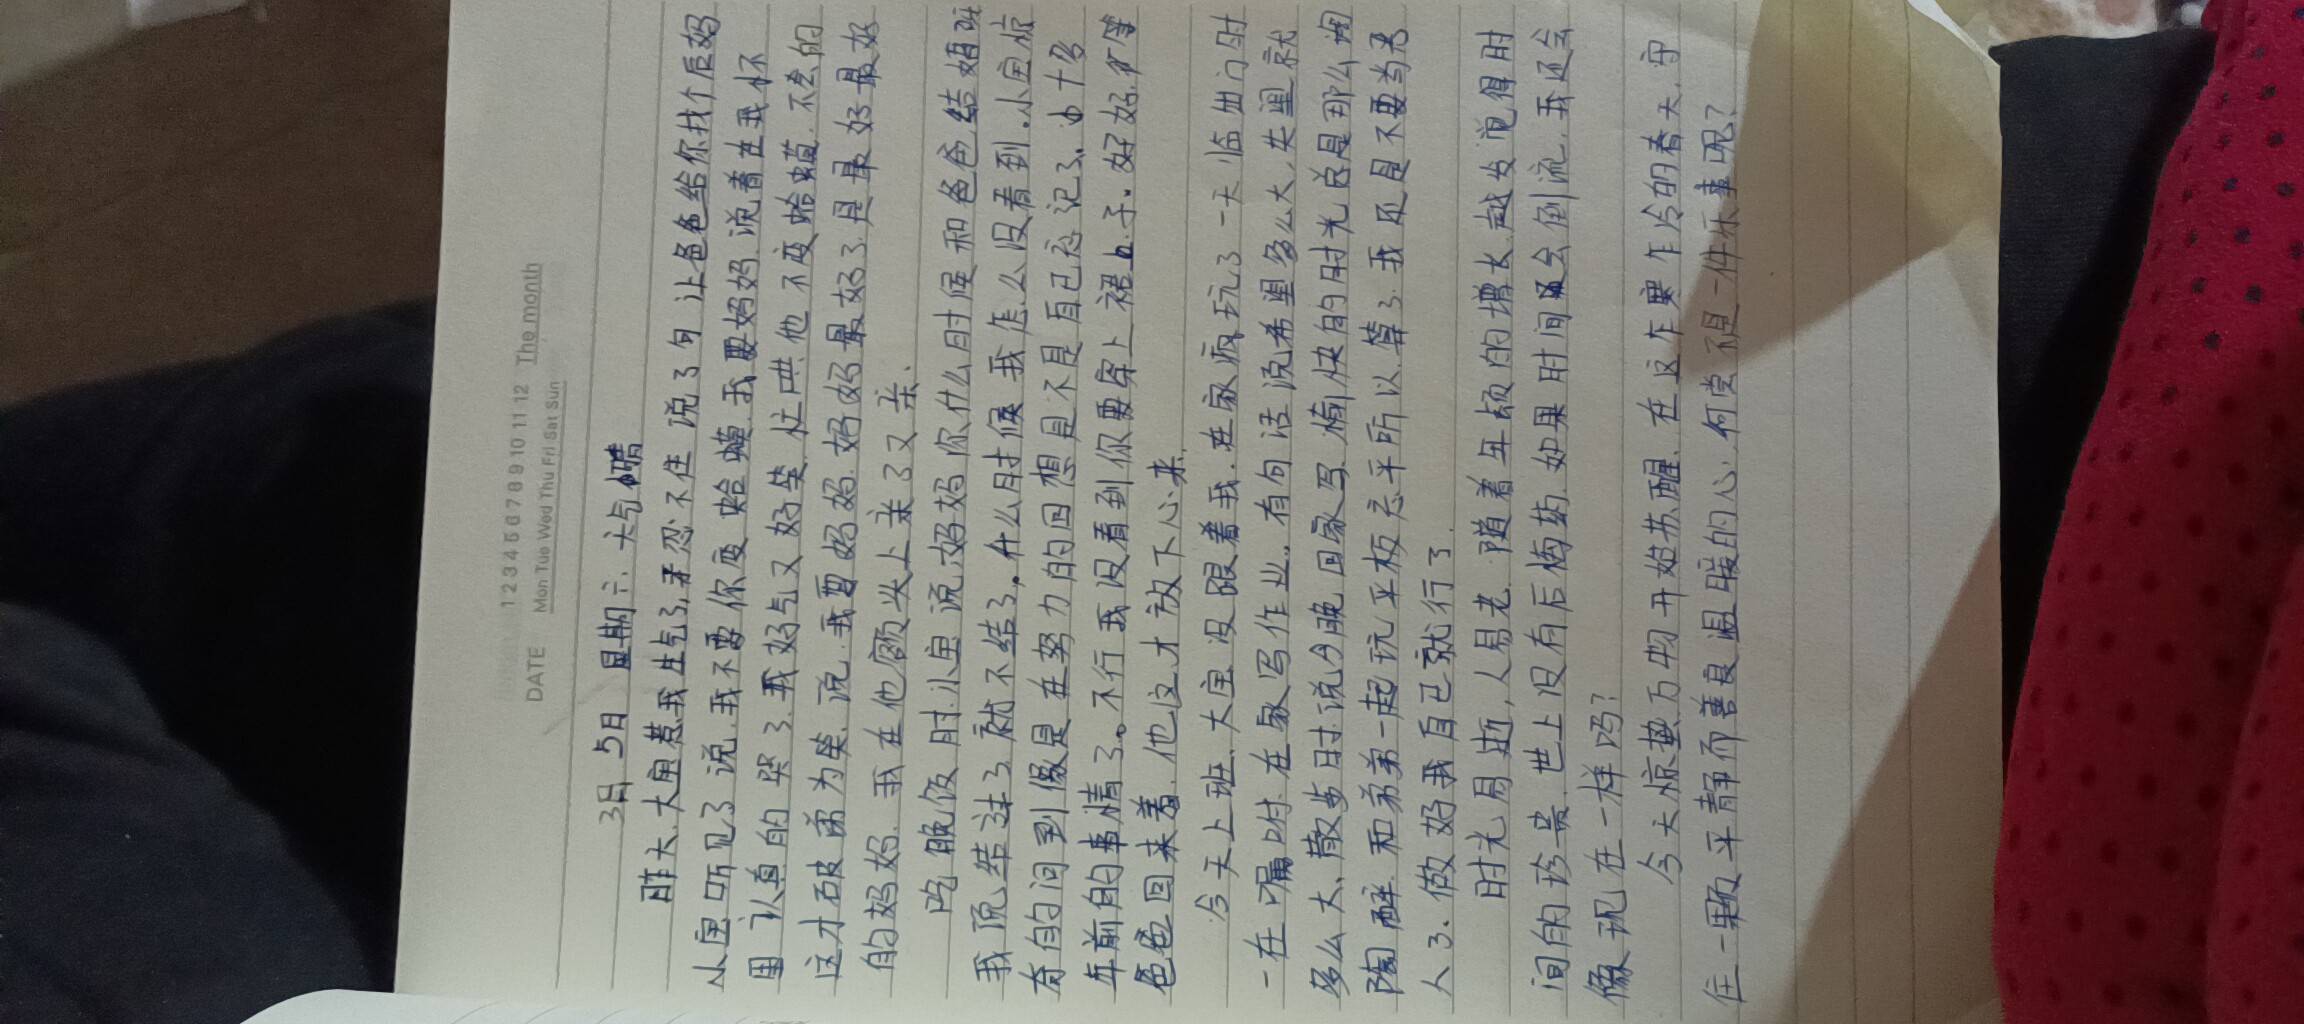 1 2 3 4 5 6 7 8 9 10 11 12 The month
DATE Mon Tue Wed Thu Fri Sat Sun
3月5日 星期六. 天气晴
昨天.大宝惹我生气了,才忍不住说了句让爸爸给你找个后妈
小宝听见了说.我不要你变蛤蟆.我要妈妈.说着在我怀
里认真的哭了.我好气又好笑.忙哄他不变蛤蟆.不会的
这才破涕为笑.说.我要妈妈.妈妈最好了.是最好最好
的妈妈.我在他额头上亲了又亲.
吃晚饭时.小宝说.妈妈你什么时候和爸爸结婚呀
我说结过了就不结了,什么时候我怎么没看到.小宝惊
奇的问到像是在努力的回想是不是自己忘记了.十多
年前的事情了。不行我没看到你要穿上裙子.好好好等
爸爸回来着.他这才放下心来.
今天上班.大宝没跟着我.在家疯玩了一天临出门时
一在嘱咐.在家写作业.有句话说希望多么大,失望就
多么大、散步时说今晚回家写.愉快的时光总是那么的
陶醉.和弟弟一起玩平板忘乎所以.算了.我还是不要当
人了.做好我自己就行了.
时光易逝,人易老.随着年龄的增长.越发觉得时
间的珍贵.世上没有后悔药.如果时间会倒流.我还会
像现在一样吗?
今天惊蛰万物开始苏醒.在这乍寒乍冷的春天.守
住一颗平静而善良温暖的心.何尝不是一件乐事呢?